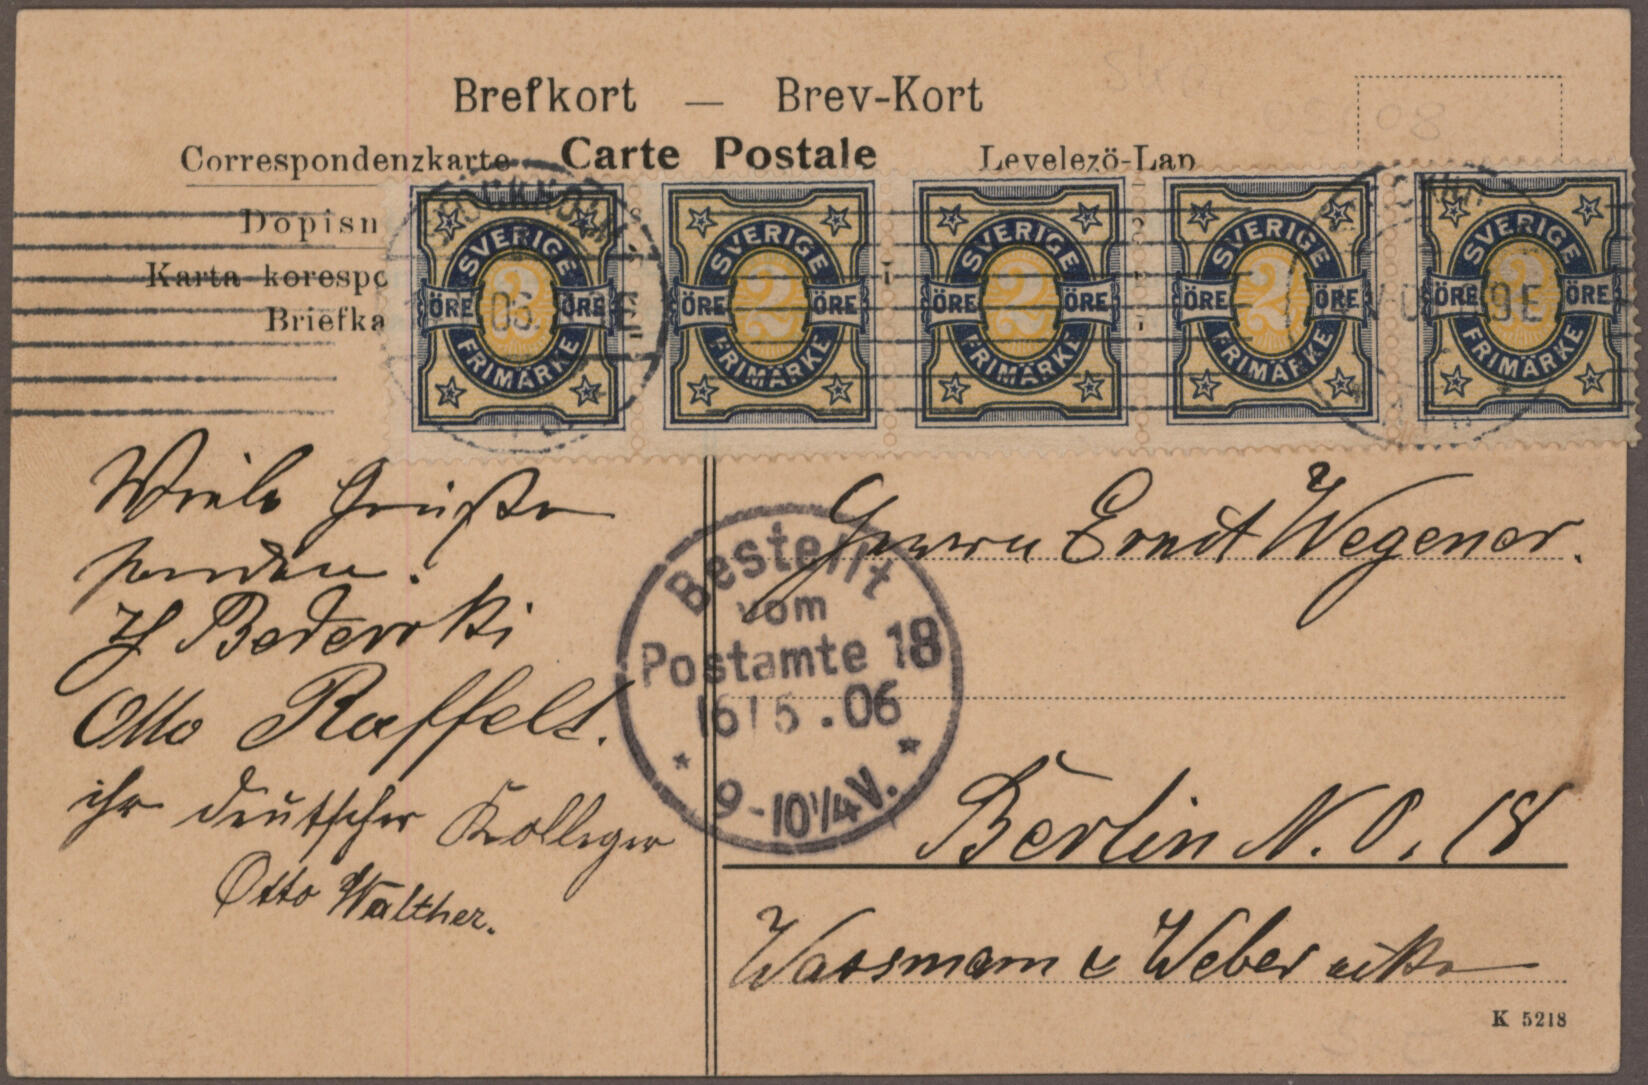 Brefkort — Brev-Kort
Correspondenzkarte Carte Postale Levelezö-Lap
Dopisn
Karta korespo
Briefka
STOCKHOLM
SVERIGE
ÖRE 2 ÖRE
FRIMÄRKE
SVERIGE
ÖRE 2 ÖRE
FRIMÄRKE
SVERIGE
ÖRE 2 ÖRE
FRIMÄRKE
SVERIGE
ÖRE 2 ÖRE
FRIMÄRKE
SVERIGE
ÖRE 2 ÖRE
FRIMÄRKE
Viele Grüße
senden.
Otto Raffelt.
ihr deutscher Kolleger
Otto Walther.
Bestellt
vom
Postamte 18
16 5.06
9-10¼V.
Herrn Ernst Wegener.
Berlin N.O. 18
Wassmann & Weber
K 5218